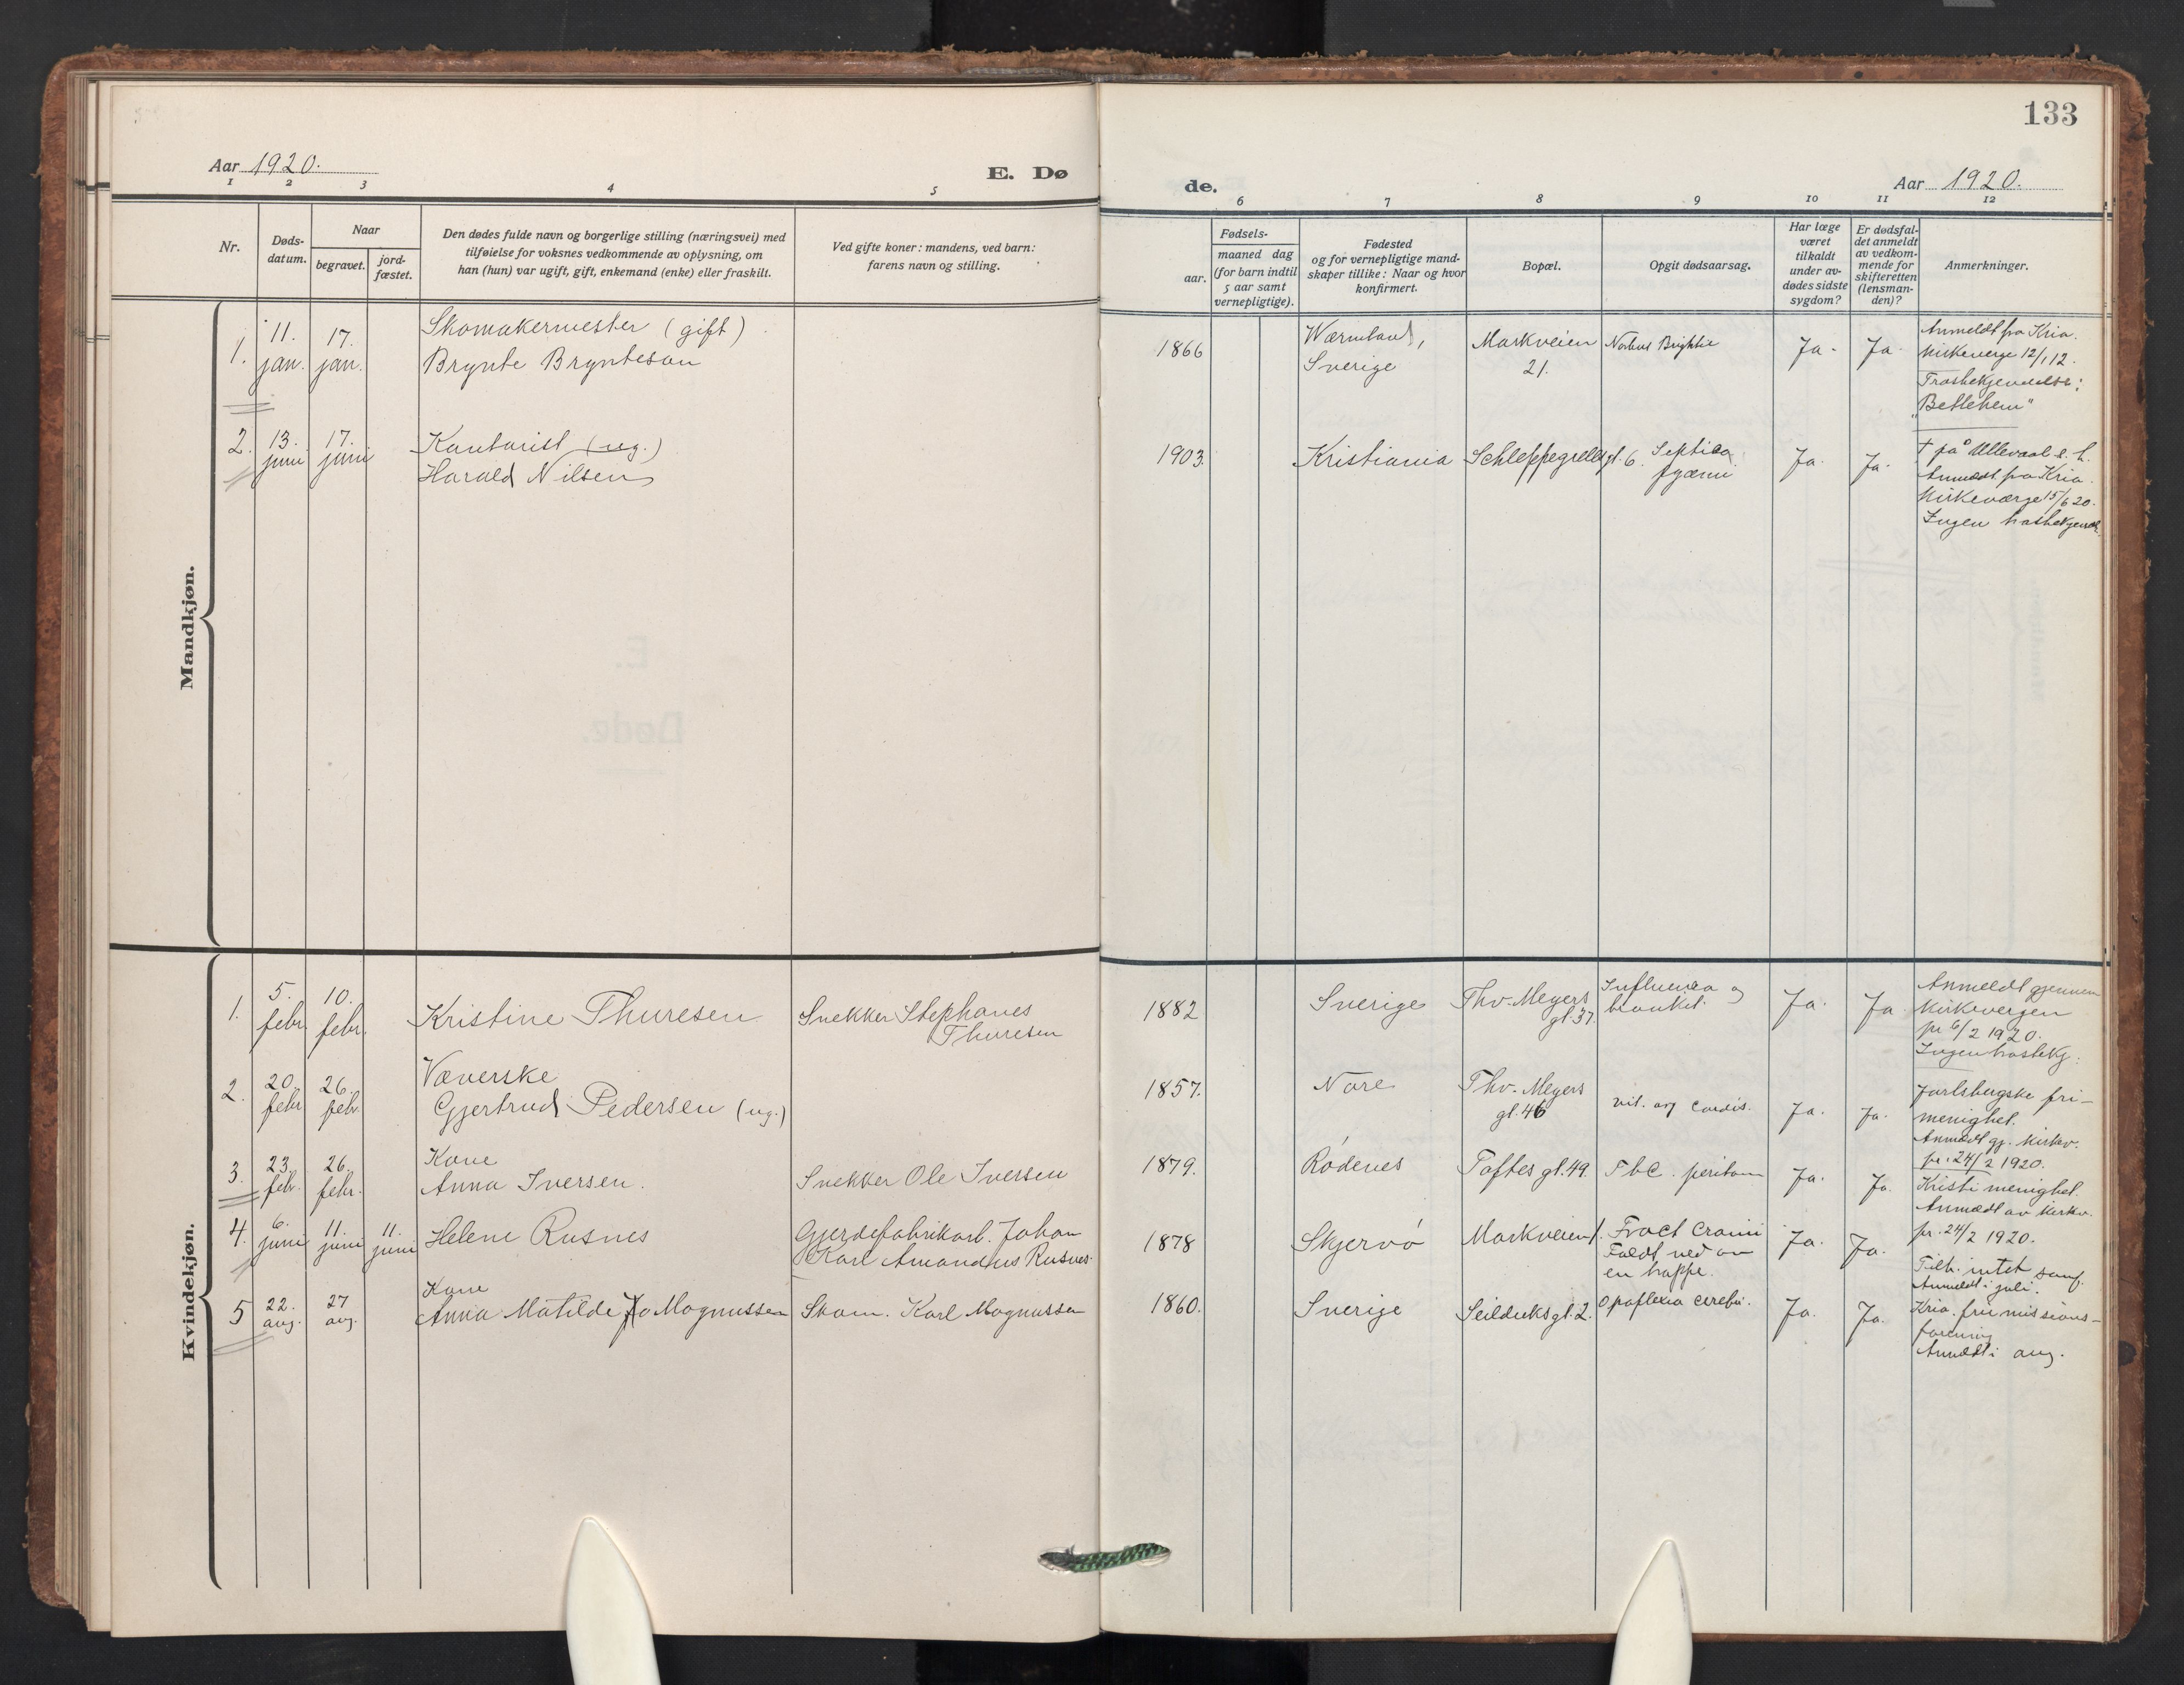 133
Aar 1920.
E. Dø
de.
Aar 1920.
1 2 3 4 5
6 7 8 9 10 11 12
Nr.
Døds-
datum.
Naar
begravet.
jord-
fæstet.
Den dødes fulde navn og borgerlige stilling (næringsvei) med
tilføielse for voksnes vedkommende av oplysning, om
han (hun) var ugift, gift, enkemand (enke) eller fraskilt.
Ved gifte koner: mandens, ved barn:
farens navn og stilling.
Fødsels-
aar.
maaned dag
(for barn indtil
5 aar samt
vernepligtige).
Fødested
og for vernepligtige mand-
skaper tillike: Naar og hvor
konfirmert.
Bopæl.
Opgit dødsaarsag.
Har læge
været
tilkaldt
under av-
dødes sidste
sygdom?
Er dødsfal-
det anmeldt
av vedkom-
mende for
skifteretten
(lensman-
den)?
Anmerkninger.
Mandkjøn.
1.
11.
jan.
17.
jan.
Skomakermester (gift)
Brynte Brynteson
1866
Wærmland,
Sverige
Markveien
21.
Ja.
Ja.
Anmeldt fra Kria.
kirkeverge 12/1 12.
Trosbekjendelse:
"Betlehem"
2.
13.
juni
17.
juni
Kontorist (ug.)
Harald Nilsen
1903.
Kristiania
Schleppegrellsgt. 6.
Ja.
Ja.
† på Ullevaal
Anmeldt fra Kria.
kirkeværge 15/6 20.
Ingen trosbekjend.
Kvindekjøn.
1.
5.
febr.
10.
febr.
Kristine Thuresen
Snekker Stephanes
Thuresen
1882
Sverige
Thv. Meyers
gt. 37.
Influensa og
bronkit.
Ja.
Ja.
Anmeldt gjennem
kirkevergen
pr 6/2 1920.
Ingen trosbekj.
2.
20.
febr
26.
febr.
Væverske
Gjertrud Pedersen (ug.)
1857.
Nore
Thv. Meyers
gt. 46
vit. org cordis.
Ja.
Ja.
Jarlsbergske fri-
menighet.
Anmeldt gj. kirkev.
pr. 24/2 1920.
3.
23.
febr.
26.
febr.
Kone
Anna Iversen.
Snekker Ole Iversen
1879.
Rødenes
Toftes gt. 49.
Tbc. periton
Ja.
Ja.
Kristi menighet.
Anmeldt av kirkev.
pr. 24/2 1920.
4.
6.
juni
11.
juni
11.
juni
Helene Rusnes
Gjerdefabrikarb. Johan
Karl Amandus Rusnes.
1878
Skjervø
Markveien 1.
Fract cranii
Faldt ned av
en trappe.
Ja.
Ja.
Tilh. intet samf.
Anmeldt i juli.
5
22.
aug.
27
aug.
Kone
Anna Matilde Magnussen
Skom. Karl Magnussen
1860.
Sverige
Seilduksgt. 2.
Apoplexia cerebri.
Ja.
Ja.
Kria. frie missions-
forening
Anmeldt i aug.